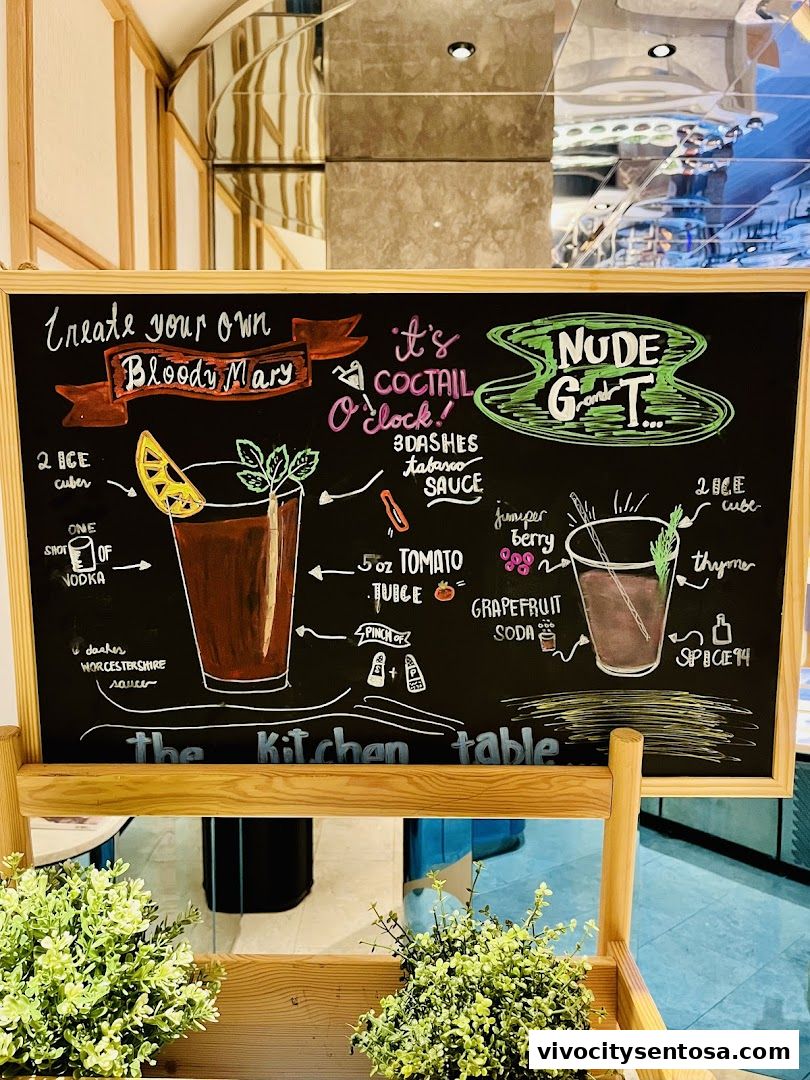 Create your own
Bloody Mary
it's
COCTAIL
O'clock!
NUDE
G and T...
2 ICE
cubes
ONE
SHOT OF
VODKA
6 dashes
WORCESTERSHIRE
sauce
3 DASHES
tabasco
SAUCE
5 oz TOMATO
JUICE
PINCH OF
S + P
juniper
berry
GRAPEFRUIT
SODA
2 ICE
cube
thyme
SPICE 94
the Kitchen table...
vivocitysentosa.com